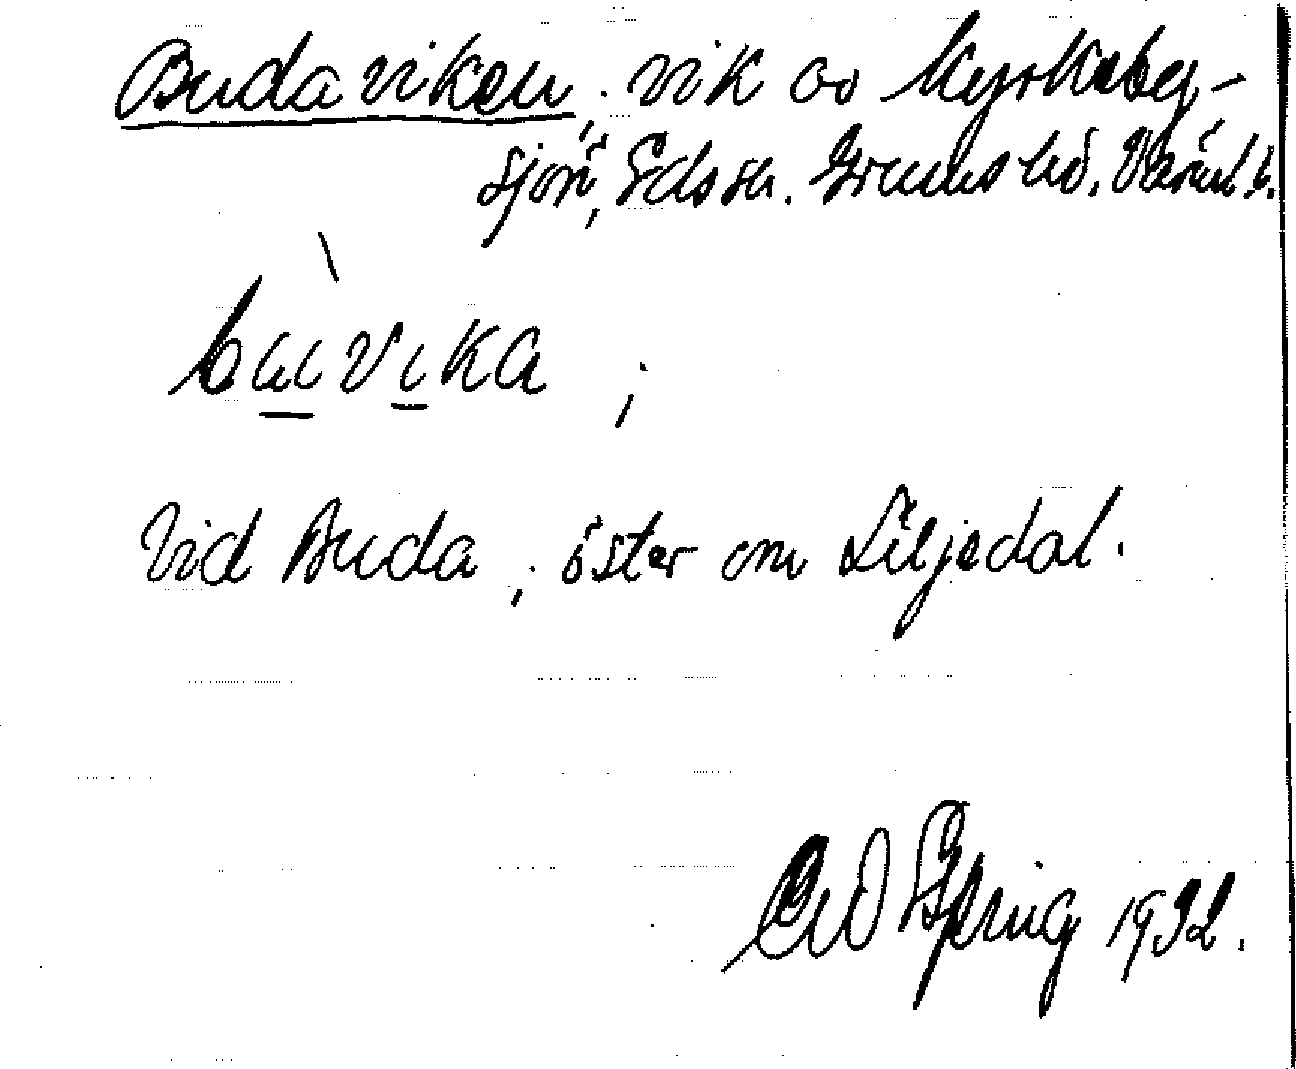 Budaviken; vik av Kyrkeby-
sjön, Eds sn. Grums hd. Värml. l.
Vid Buda, öster om Liljedal.
1932.